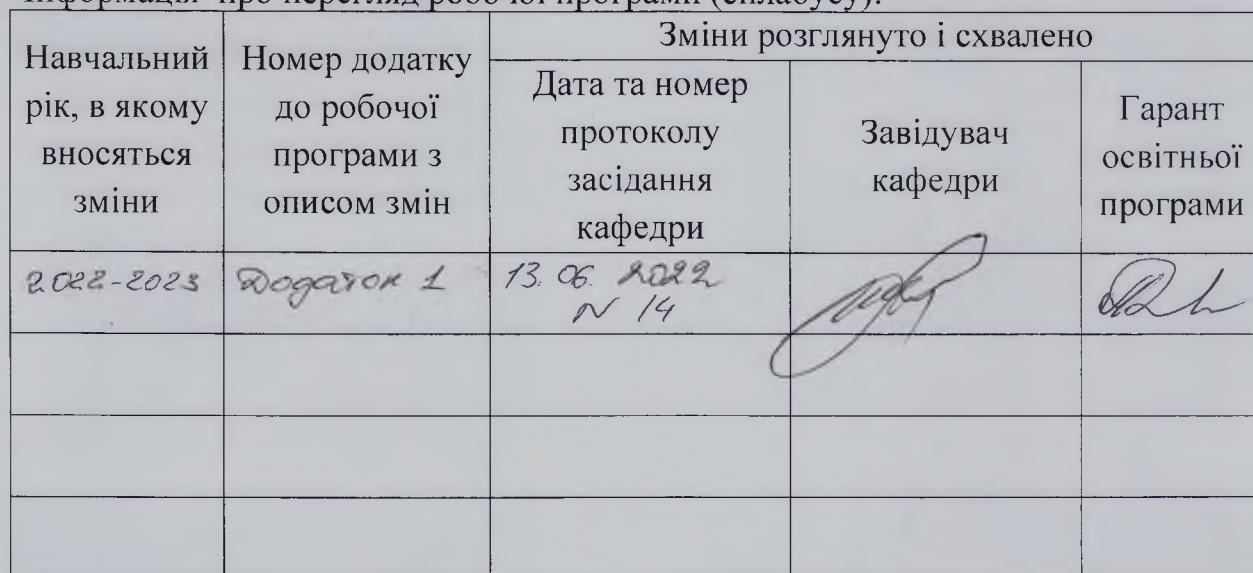 Інформація про перегляд робочої програми (силабусу):
Навчальний
рік, в якому
вносяться
зміни
Номер додатку
до робочої
програми з
описом змін
Зміни розглянуто і схвалено
Дата та номер
протоколу
засідання
кафедри
Завідувач
кафедри
Гарант
освітньої
програми
2022-2023
Додаток 1
13. 06. 2022
N 14